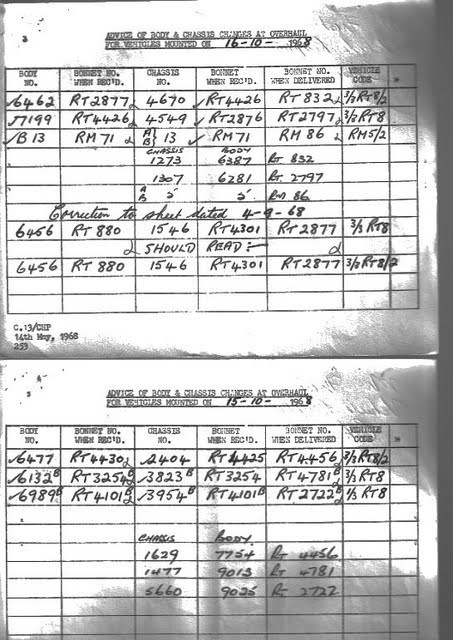 ADVICE OF BODY & CHASSIS CHANGES AT OVERHAUL
FOR VEHICLES MOUNTED ON 16-10- 1968
BODY NO. BONNET NO. WHEN REC'D. CHASSIS NO. BONNET WHEN REC'D. BONNET NO. WHEN DELIVERED VEHICLE CODE
✓6462 RT2877 2 ✓4670 ✓RT4426 RT 832 2 3/3 RT8/2
✓7199 RT4426 2 ✓4549 ✓RT2876 RT2797 2 3/3 RT8
✓B13 RM71 2 A B } 13 ✓RM71 RM 86 2 RM5/2
CHASSIS BODY
1273 6387 RT 832
1307 6281 RT 2797
A B 5 5 RM 86
Correction to sheet dated 4-9-68
6456 RT 880 1546 RT4301 RT 2877 3/3 RT8
2 SHOULD READ:- 2
6456 RT 880 1546 RT4301 RT 2877 3/3 RT8/2
C.13/CHP
14th May, 1968
253
ADVICE OF BODY & CHASSIS CHANGES AT OVERHAUL
FOR VEHICLES MOUNTED ON 15-10- 1968
BODY NO. BONNET NO. WHEN REC'D. CHASSIS NO. BONNET WHEN REC'D. BONNET NO. WHEN DELIVERED VEHICLE CODE
✓6477 RT4430 2 ✓2404 RT4425 RT4456 2 3/3 RT8/2
✓6132 B RT3254 B 2 ✓3823 B RT3254 RT4781 B 2 3/3 RT8
✓6989 B RT4101 B 2 ✓3954 B RT4101 B RT2722 B 2 1/3 RT8
CHASSIS BODY
1629 7754 RT 4456
1477 9013 RT 4781
5660 9025 RT 2722